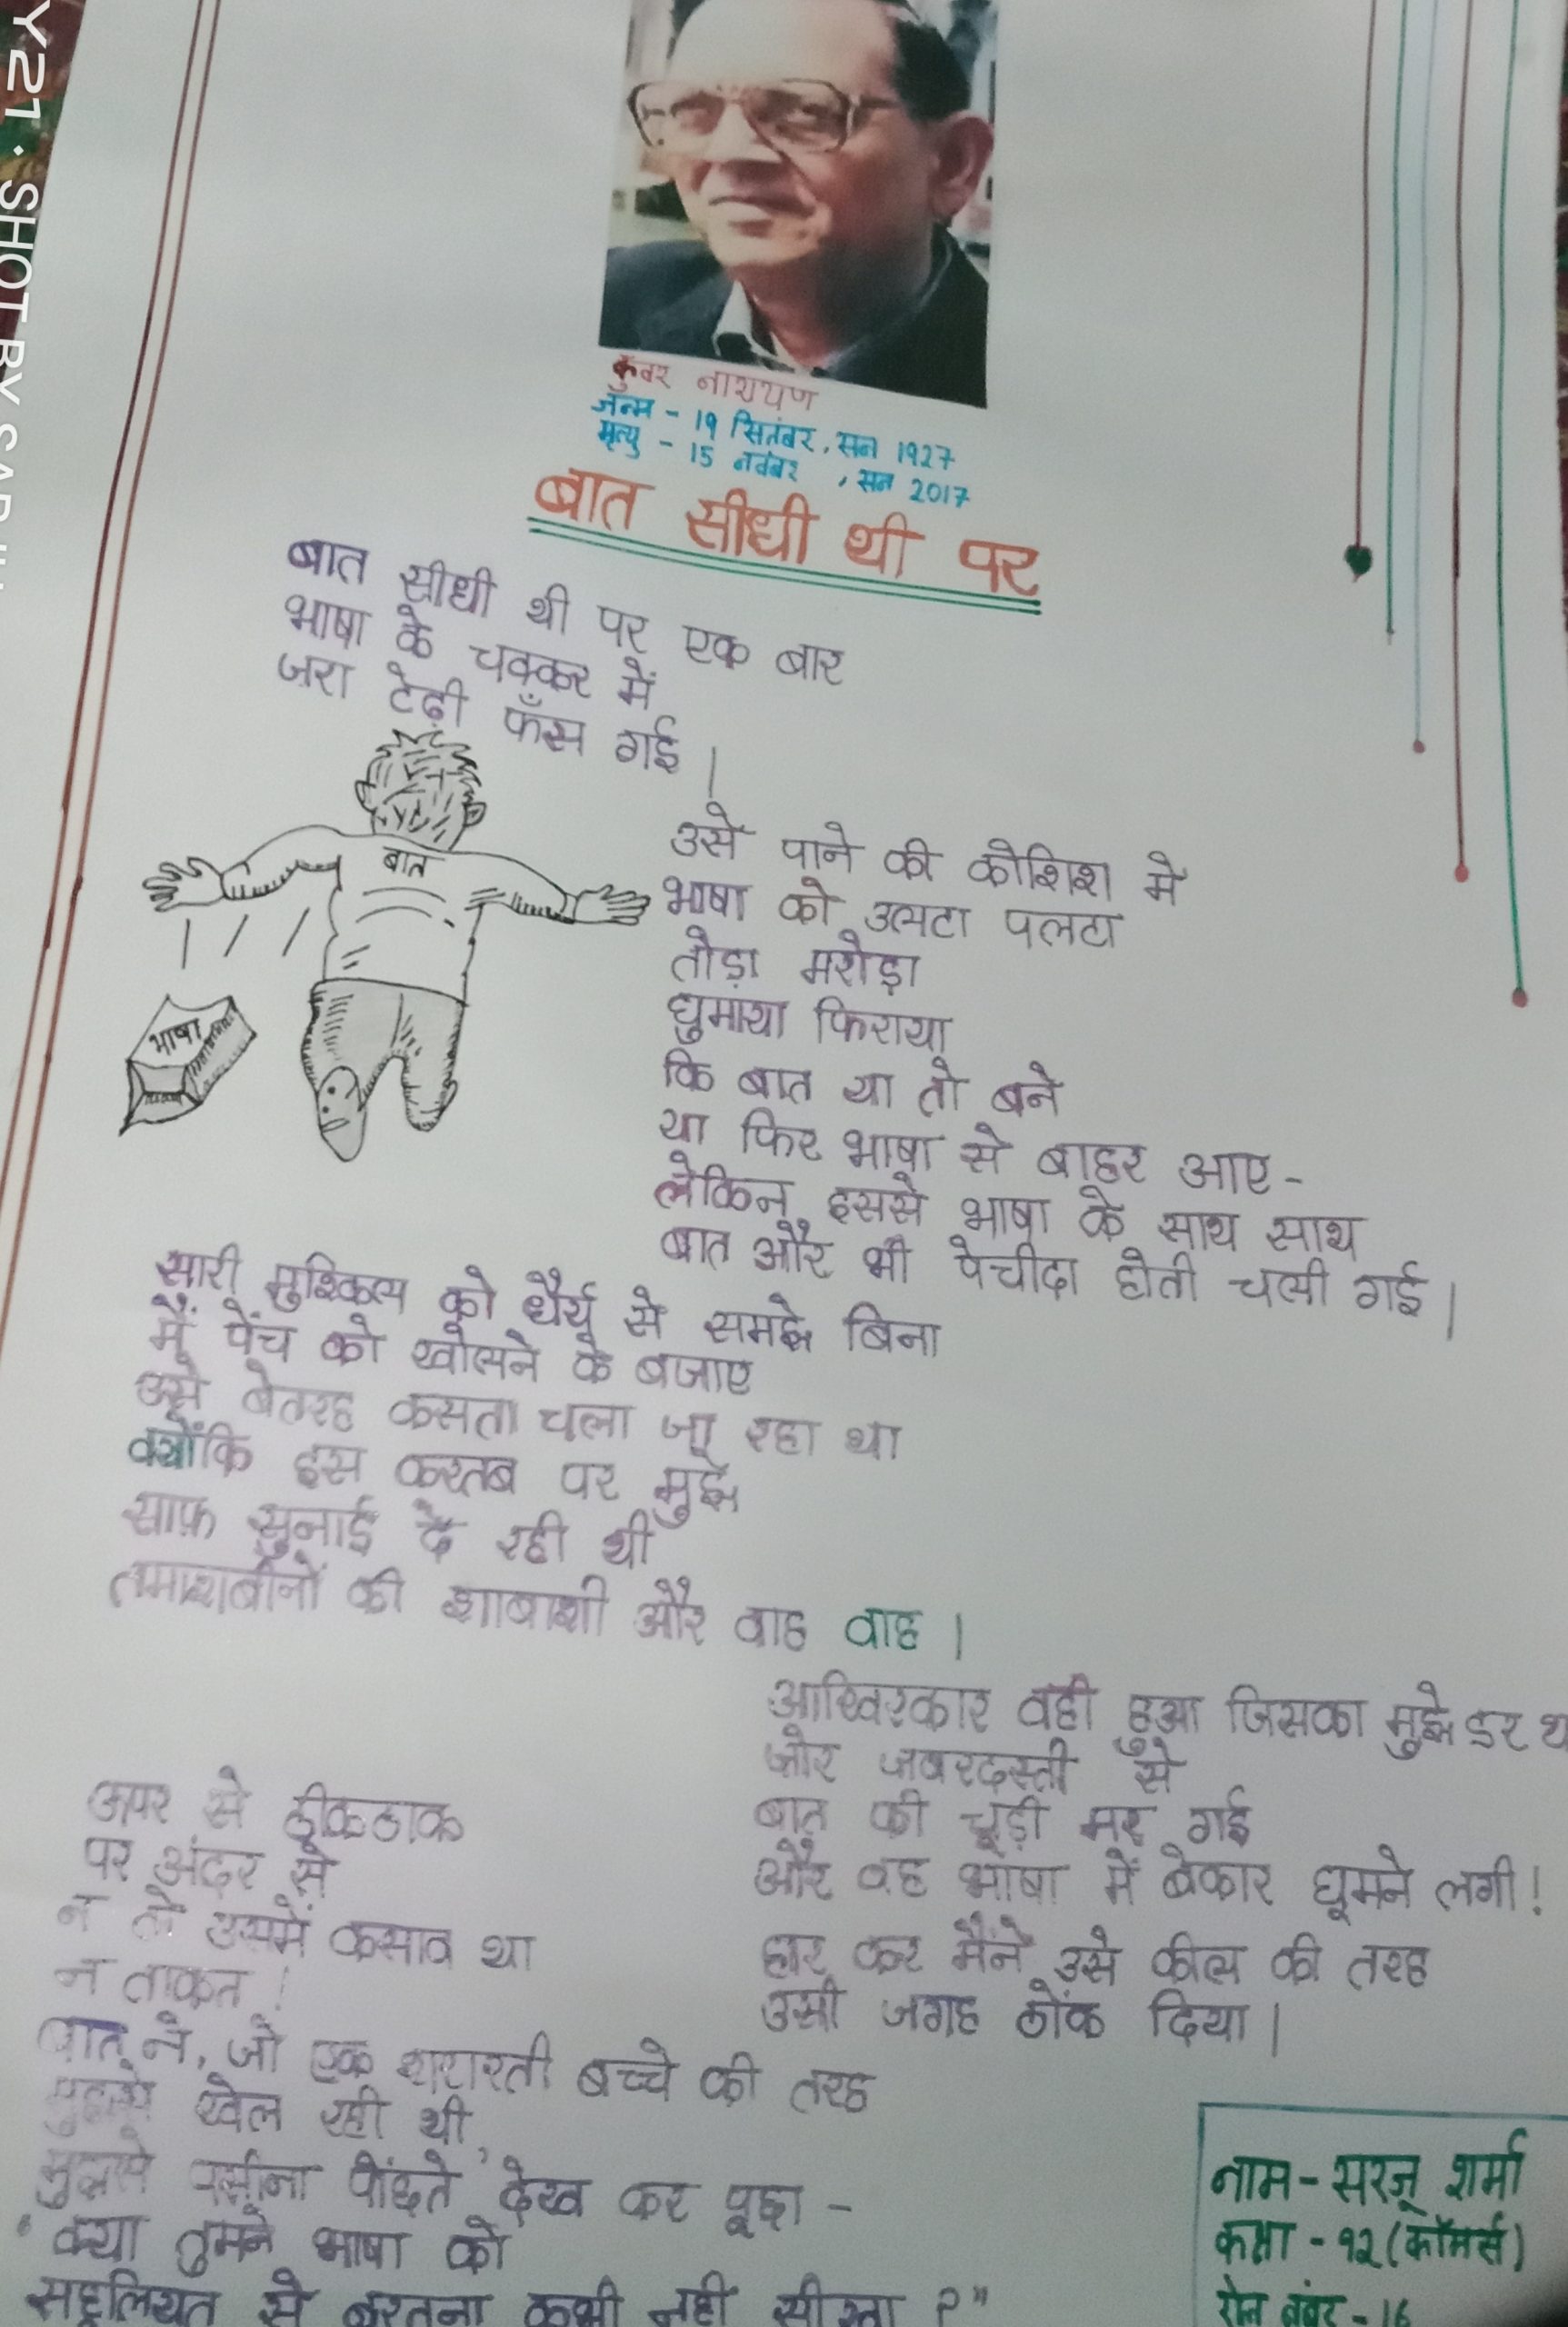 Y21 · SHOT BY
कुवर नारायण
जन्म - 19 सितंबर, सन 1927
मृत्यु - 15 नवंबर , सन 2017
बात सीधी थी पर
बात सीधी थी पर एक बार
भाषा के चक्कर में
जरा टेढ़ी फँस गई |
बात
भाषा
उसे पाने की कोशिश मे
भाषा को उलटा पलटा
तोड़ा मरोड़ा
घुमाया फिराया
कि बात या तो बने
या फिर भाषा से बाहर आए-
लेकिन इससे भाषा के साथ साथ
बात और भी पेचीदा होती चली गई |
सारी मुश्किल को धैर्य से समझे बिना
मैं पेंच को खोलने के बजाए
उसे बेतरह कसता चला जा रहा था
क्योंकि इस करतब पर मुझे
साफ़ सुनाई दे रही थी
तमाशबीनों की शाबाशी और वाह वाह |
आखिरकार वही हुआ जिसका मुझे डर
जोर जबरदस्ती से
बात की चूड़ी मर गई
और वह भाषा में बेकार घूमने लगी!
हार कर मैंने उसे कील की तरह
उसी जगह ठोंक दिया |
ऊपर से ठीकठाक
पर अंदर से
न तो उसमें कसाव था
न ताकत !
बात ने, जो एक शरारती बच्चे की तरह
मुझसे खेल रही थी,
मुझसे पसीना पोंछते देख कर पूछा -
"क्या तुमने भाषा को
सहूलियत से बरतना कभी नही सीखा ?"
नाम - सरजू शर्मा
कक्षा - १२ (कॉमर्स)
रोल नंबर - 16